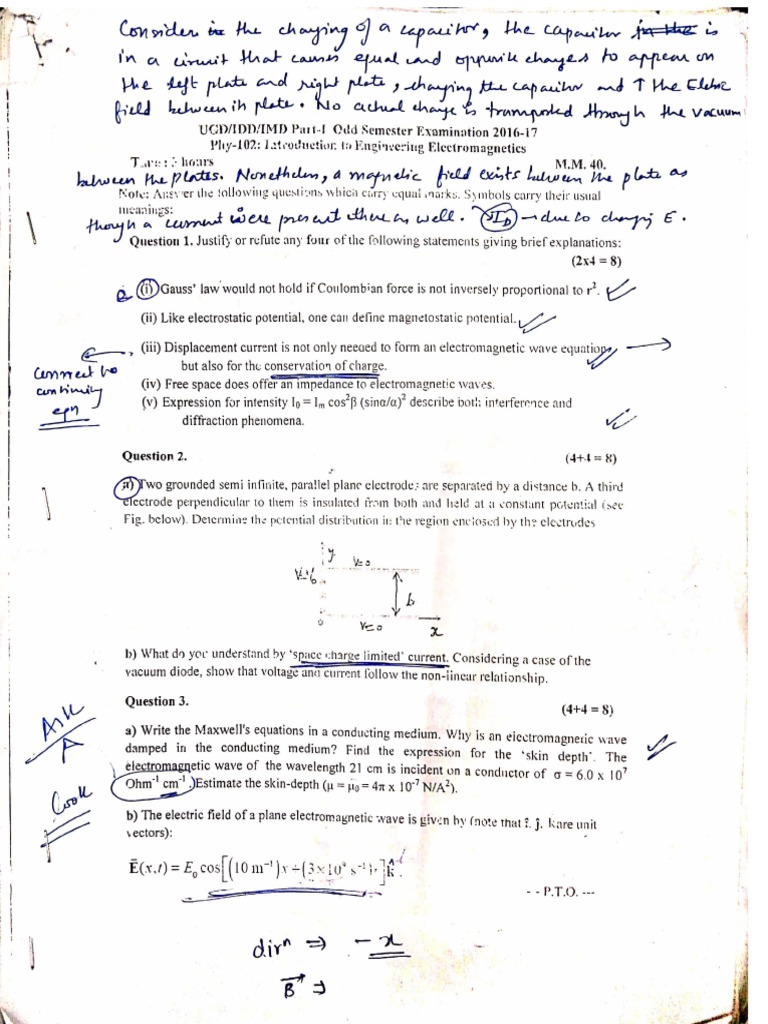 Consider in the charging of a capacitor, the capacitor in the is
in a circuit that causes equal and opposite charges to appear on
the left plate and right plate, charging the capacitor and ↑ the Eletric
field between its plate. No actual charge is transported through the vacuum
UGD/IDD/IMD Part-I Odd Semester Examination 2016-17
Phy-102: Introduction to Engineering Electromagnetics
Time: 3 hours M.M. 40.
between the plates. Nonetheless, a magnetic field exists between the plate as
Note: Answer the following questions which carry equal marks. Symbols carry their usual
meanings:
though a current were present there as well. I_D → due to changing E.
Question 1. Justify or refute any four of the following statements giving brief explanations:
(2x4 = 8)
(i) Gauss' law would not hold if Coulombian force is not inversely proportional to r².
(ii) Like electrostatic potential, one can define magnetostatic potential.
(iii) Displacement current is not only needed to form an electromagnetic wave equation,
but also for the conservation of charge.
connect to
continuity
eqn
(iv) Free space does offer an impedance to electromagnetic waves.
(v) Expression for intensity I₀ = Iₘ cos²β (sinα/α)² describe both interference and
diffraction phenomena.
Question 2. (4+4 = 8)
a) Two grounded semi infinite, parallel plane electrodes are separated by a distance b. A third
electrode perpendicular to them is insulated from both and held at a constant potential (see
Fig. below). Determine the potential distribution in the region enclosed by the electrodes
y V=0
b
0 V=0 x
b) What do you understand by 'space charge limited' current. Considering a case of the
vacuum diode, show that voltage and current follow the non-linear relationship.
Question 3. (4+4 = 8)
Ask
A
a) Write the Maxwell's equations in a conducting medium. Why is an electromagnetic wave
damped in the conducting medium? Find the expression for the 'skin depth'. The
electromagnetic wave of the wavelength 21 cm is incident on a conductor of σ = 6.0 x 10⁷
Ohm⁻¹ cm⁻¹. Estimate the skin-depth (μ = μ₀ = 4π x 10⁻⁷ N/A²).
b) The electric field of a plane electromagnetic wave is given by (note that î, ĵ, k are unit
vectors):
Ē(x,t) = E₀ cos[(10 m⁻¹)x + (3×10⁹ s⁻¹)t]k̂.
- - P.T.O. ---
dirⁿ ⇒ -x
B⃗ ⇒